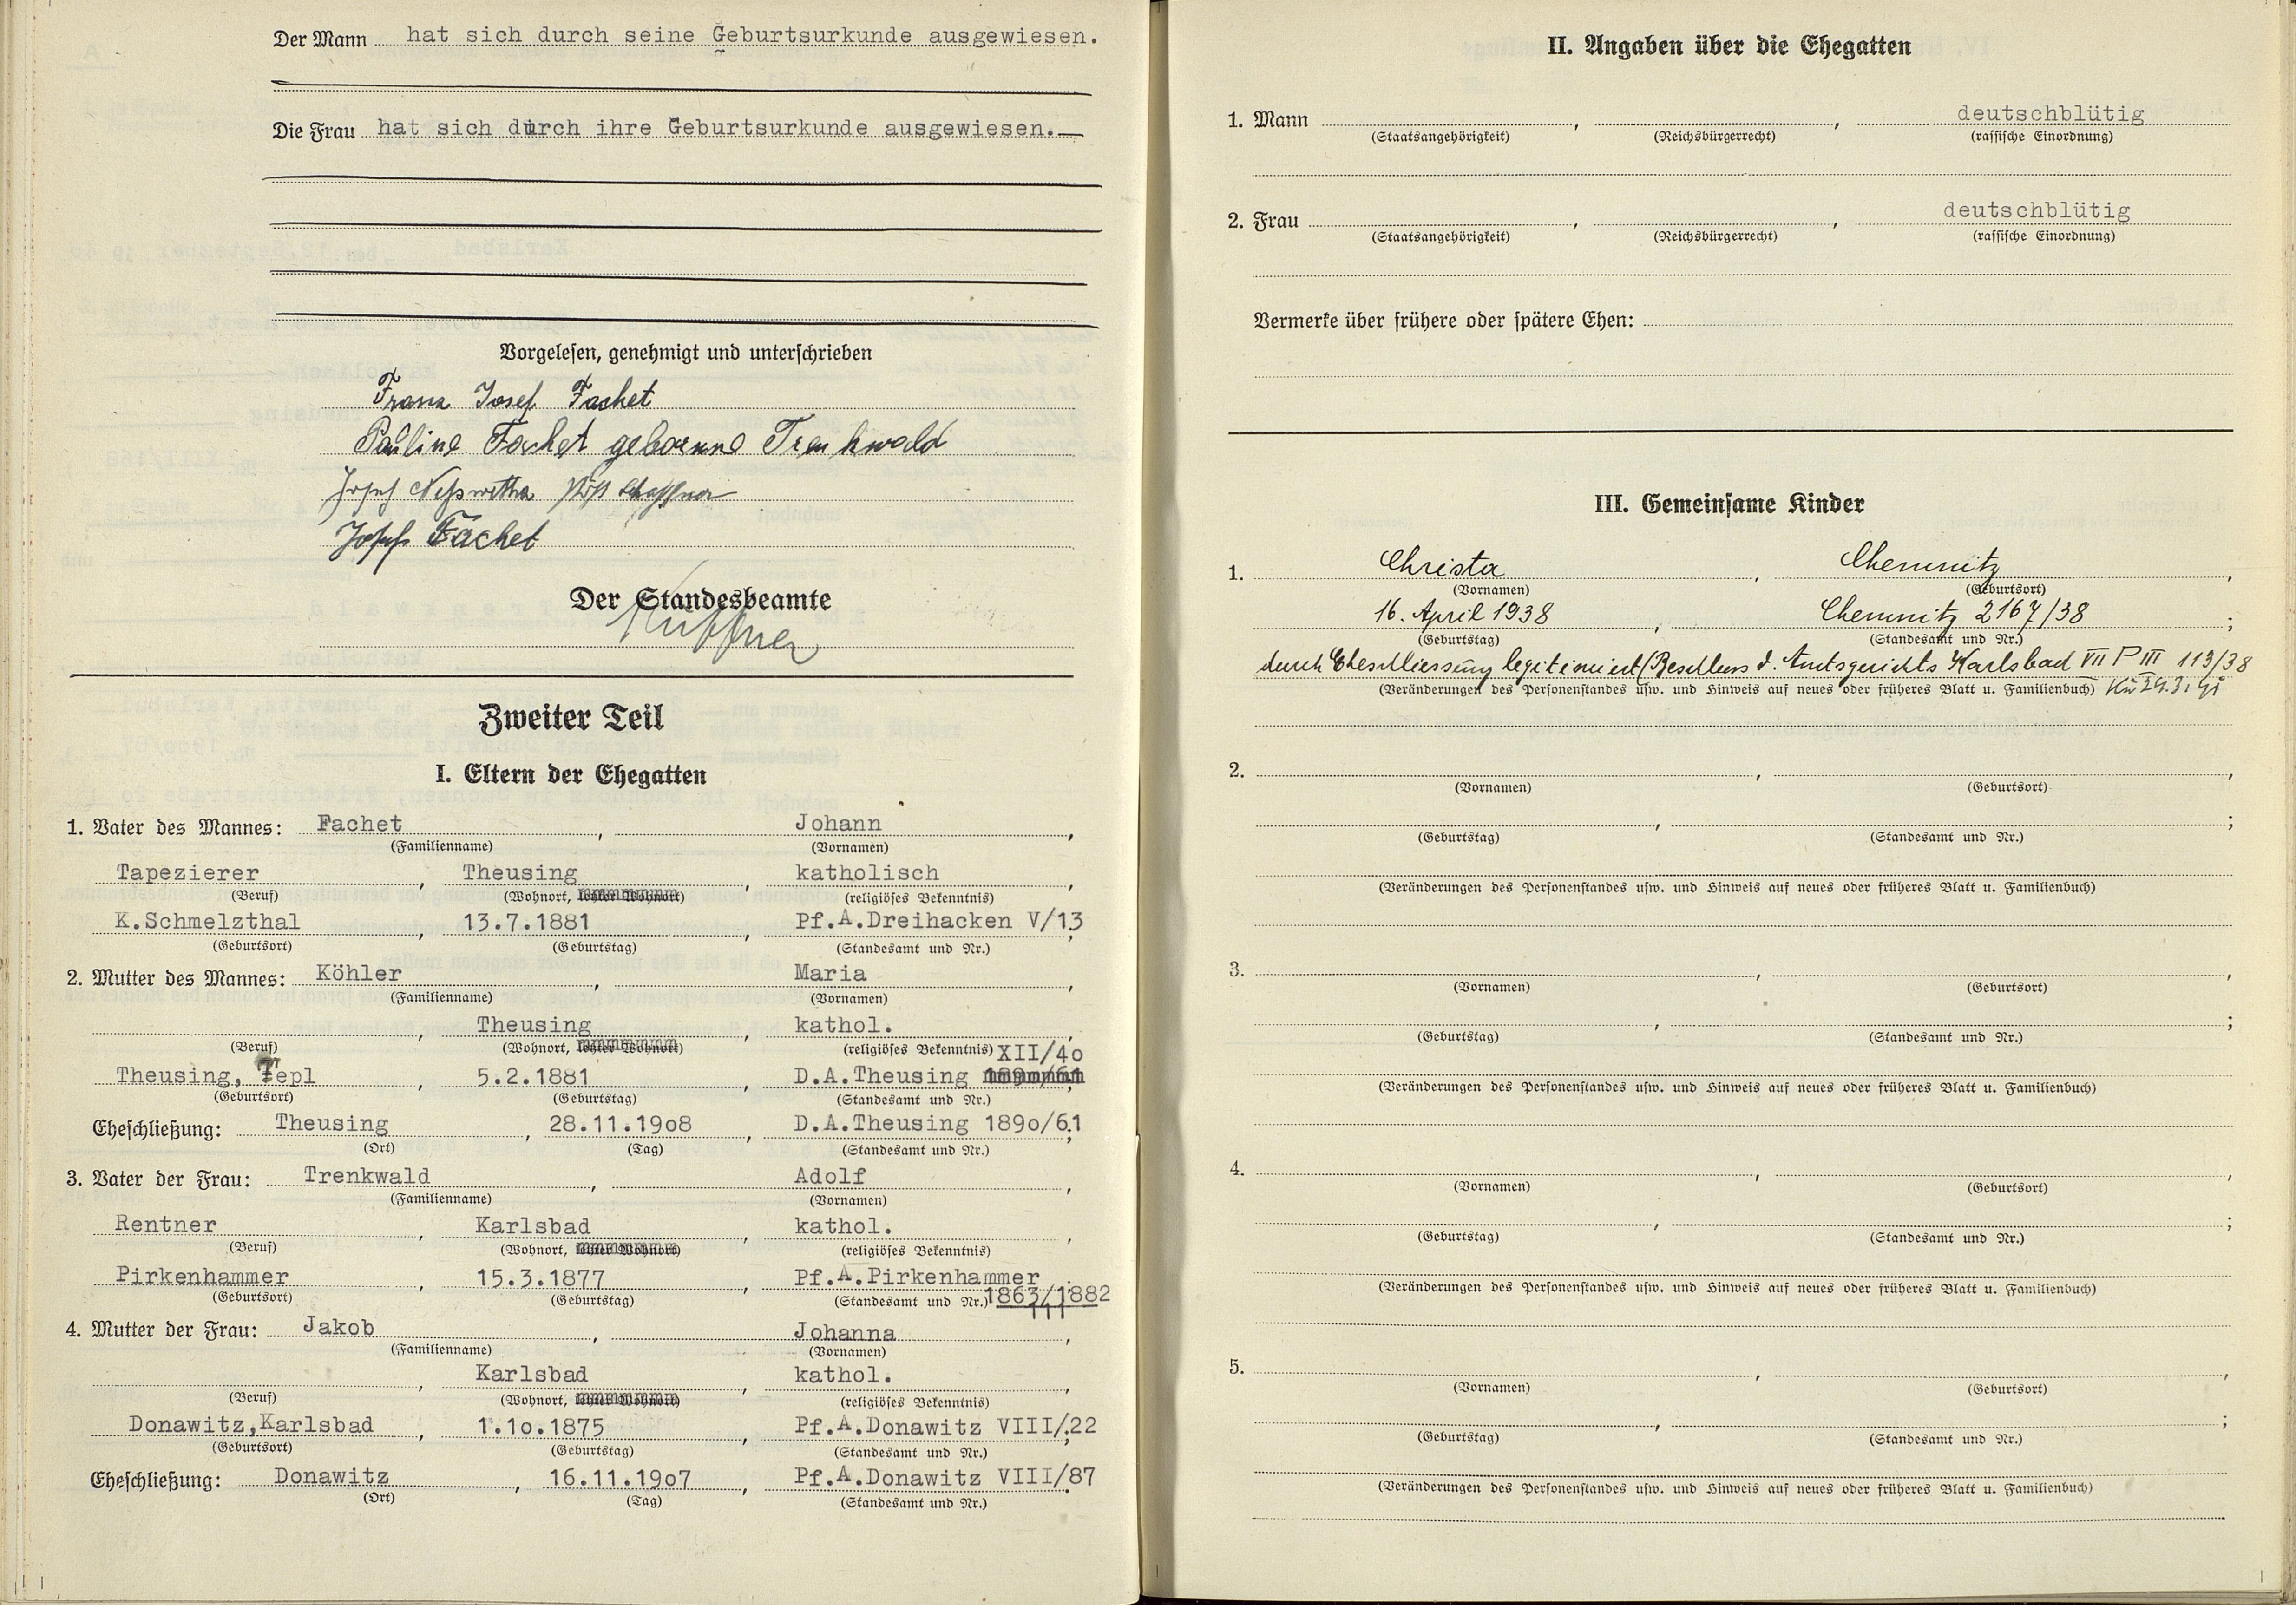 Der Mann hat sich durch seine Geburtsurkunde ausgewiesen.
Die Frau hat sich durch ihre Geburtsurkunde ausgewiesen.—
Vorgelesen, genehmigt und unterschrieben
Franz Josef Fachet
Pauline Fachet geborene Trenkwald
Josef
Josef Fachet
Der Standesbeamte
Zweiter Teil
I. Eltern der Ehegatten
1. Vater des Mannes: Fachet, Johann,
(Familienname) (Vornamen)
Tapezierer, Theusing, katholisch,
(Beruf) (Wohnort, letzter Wohnort) (religiöses Bekenntnis)
K.Schmelzthal, 13.7.1881, Pf.A.Dreihacken V/13;
(Geburtsort) (Geburtstag) (Standesamt und Nr.)
2. Mutter des Mannes: Köhler, Maria,
(Familienname) (Vornamen)
Theusing, kathol.,
(Beruf) (Wohnort, letzter Wohnort) (religiöses Bekenntnis) XII/4o
Theusing, Tepl, 5.2.1881, D.A.Theusing 189o/61
(Geburtsort) (Geburtstag) (Standesamt und Nr.)
Eheschließung: Theusing, 28.11.19o8, D.A.Theusing 189o/61;
(Ort) (Tag) (Standesamt und Nr.)
3. Vater der Frau: Trenkwald, Adolf,
(Familienname) (Vornamen)
Rentner, Karlsbad, kathol.,
(Beruf) (Wohnort, letzter Wohnort) (religiöses Bekenntnis)
Pirkenhammer, 15.3.1877, Pf.A.Pirkenhammer;
(Geburtsort) (Geburtstag) (Standesamt und Nr.) 1863/1882
111
4. Mutter der Frau: Jakob, Johanna,
(Familienname) (Vornamen)
, Karlsbad, kathol.,
(Beruf) (Wohnort, letzter Wohnort) (religiöses Bekenntnis)
Donawitz,Karlsbad, 1.1o.1875, Pf.A.Donawitz VIII/22;
(Geburtsort) (Geburtstag) (Standesamt und Nr.)
Eheschließung: Donawitz, 16.11.19o7, Pf.A.Donawitz VIII/87
(Ort) (Tag) (Standesamt und Nr.)
II. Angaben über die Ehegatten
1. Mann , , deutschblütig
(Staatsangehörigkeit) (Reichsbürgerrecht) (rassische Einordnung)
2. Frau , , deutschblütig
(Staatsangehörigkeit) (Reichsbürgerrecht) (rassische Einordnung)
Vermerke über frühere oder spätere Ehen:
III. Gemeinsame Kinder
1. Christa, Chemnitz,
(Vornamen) (Geburtsort)
16. April 1938, Chemnitz 2167/38;
(Geburtstag) (Standesamt und Nr.)
durch Eheschliessung legitimiert (Beschluss d. Amtsgerichts Karlsbad VII P III 113/38
(Veränderungen des Personenstandes usw. und Hinweis auf neues oder früheres Blatt u. Familienbuch)
2. , ,
(Vornamen) (Geburtsort)
, ;
(Geburtstag) (Standesamt und Nr.)
(Veränderungen des Personenstandes usw. und Hinweis auf neues oder früheres Blatt u. Familienbuch)
3. , ,
(Vornamen) (Geburtsort)
, ;
(Geburtstag) (Standesamt und Nr.)
(Veränderungen des Personenstandes usw. und Hinweis auf neues oder früheres Blatt u. Familienbuch)
4. , ,
(Vornamen) (Geburtsort)
, ;
(Geburtstag) (Standesamt und Nr.)
(Veränderungen des Personenstandes usw. und Hinweis auf neues oder früheres Blatt u. Familienbuch)
5. , ,
(Vornamen) (Geburtsort)
, ;
(Geburtstag) (Standesamt und Nr.)
(Veränderungen des Personenstandes usw. und Hinweis auf neues oder früheres Blatt u. Familienbuch)